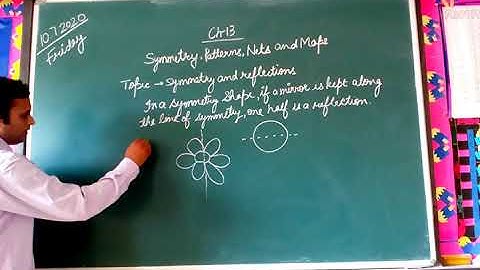 10.7.2020
Friday
Ch 13
Symmetry, Patterns, Nets and Maps
Topic → Symmetry and reflections
In a Symmetry Shape, if a mirror is kept along
the line of symmetry, one half is a reflection.